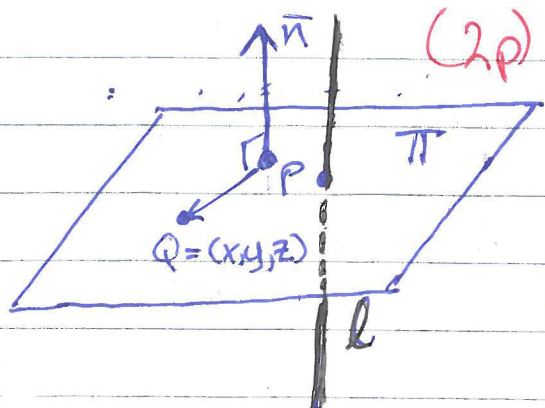 n̄
(2p)
π
P
Q=(x,y,z)
l